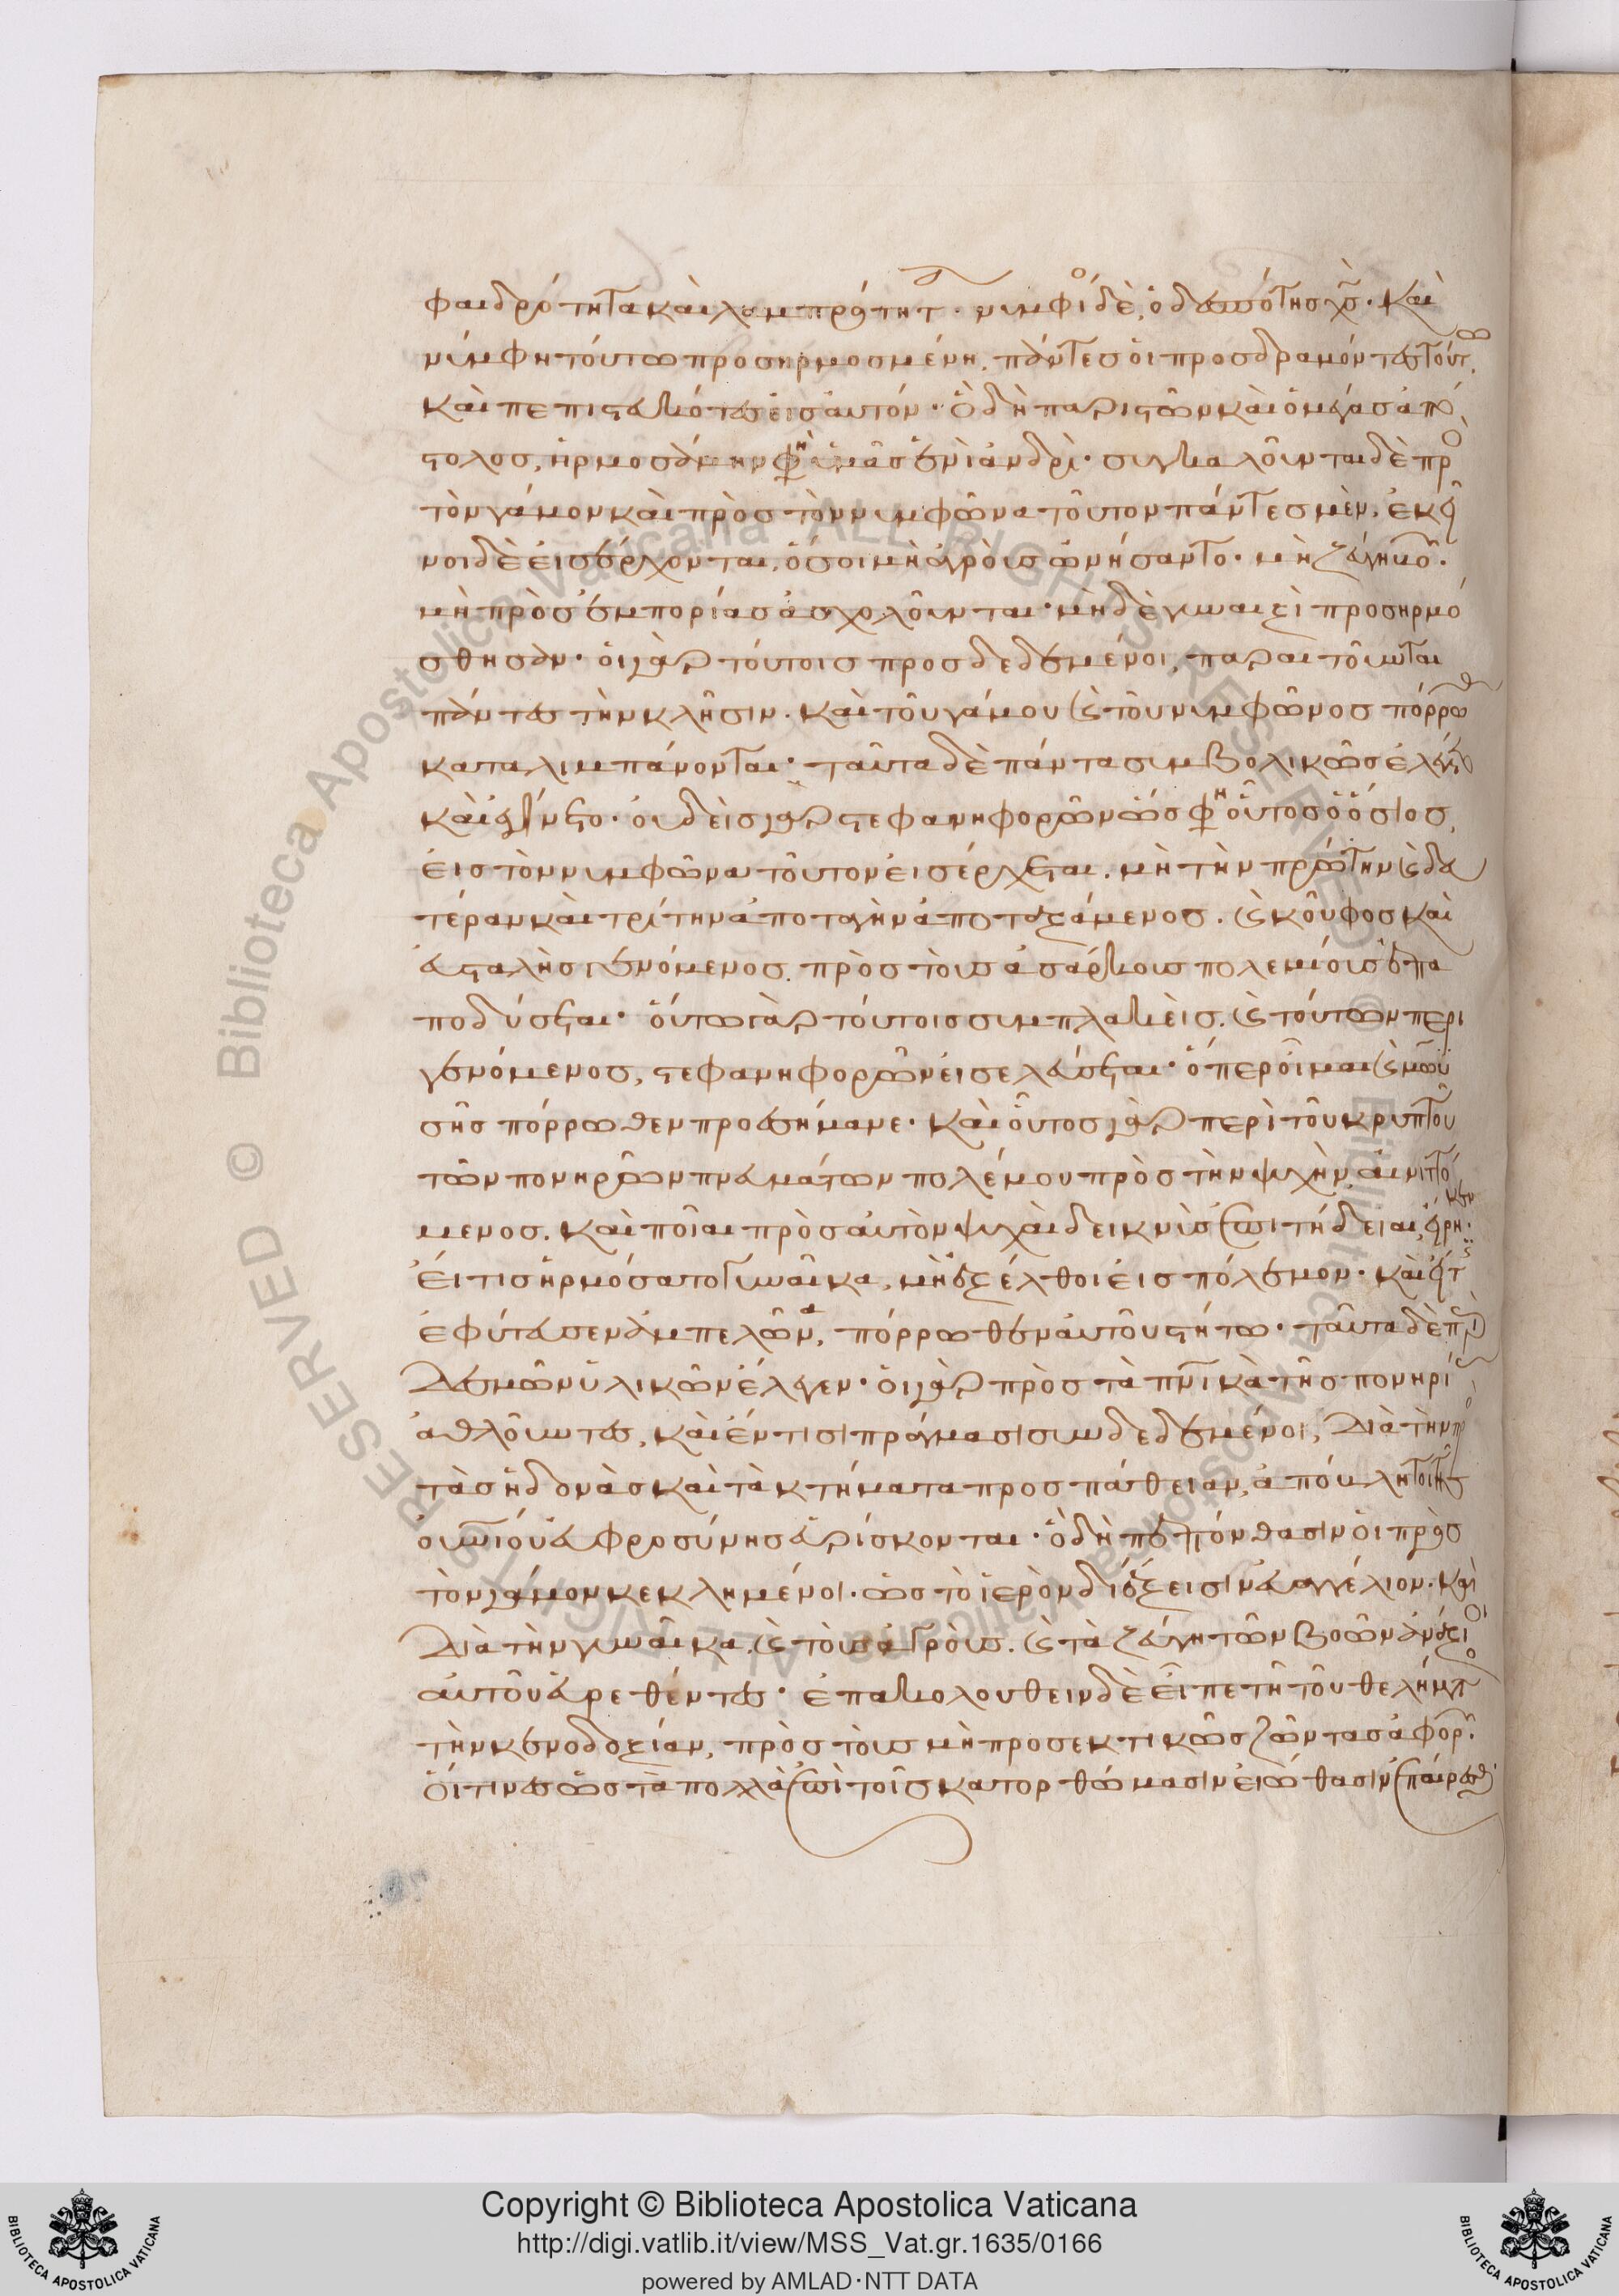 φαιδρότητα καὶ λαμπρότητα. νυμφίος δὲ, ὁ δεσπότης χς. καὶ
νύμφη τούτω προσηρμοσμένη. πάντες οἱ προσδραμόντες τούτω,
καὶ πεπιστευκότες εἰς αὐτόν. ὃ δὴ παριστῶν καὶ ὁ μέγας ἀπό
στολος, ἡρμοσάμην φησὶν ὑμᾶς ἑνὶ ἀνδρί. συγκαλοῦνται δὲ πρὸς
τὸν γάμον καὶ πρὸς τὸν νυμφῶνα τοῦτον πάντες μὲν, ἐκεῖ
νοι δὲ εἰσέρχονται, ὅσοι μὴ ἀγροὺς ὠνήσαντο. μὴ ζεύγη βο.
μὴ πρὸς ἐμπορίας ἀσχολοῦνται. μὴ δὲ γυναιξὶ προσηρμό
σθησαν. οἱ γὰρ τούτοις προσδεδεμένοι, παραιτοῦνται
πάντως τὴν κλῆσιν. καὶ τοῦ γάμου καὶ τοῦ νυμφῶνος πόρρω
καταλιμπάνονται. ταῦτα δὲ πάντα συμβολικῶς ἐλέγετο
καὶ ἐγίνετο. οὐδεὶς γὰρ στεφανηφορῶν ὥς φη οὗτος ὁ ὅσιος,
εἰς τὸν νυμφῶνα τοῦτον εἰσέρχεται. μὴ τὴν πρώτην καὶ δευ
τέραν καὶ τρίτην ἀποταγὴν ἀποταξάμενος. καὶ κοῦφος καὶ
εὐσταλὴς γενόμενος. πρὸς τοὺς ἀσάρκους πολεμίους ἐπα
ποδύσεται. οὕτω γὰρ τούτοις συμπλακεὶς. καὶ τούτων περι
γενόμενος, στεφανηφορῶν εἰσελεύσεται. ὅπερ οἶμαι καὶ μωϋ
σῆς πόρρωθεν προεσήμανε. καὶ οὗτος γὰρ περὶ τοῦ κρυπτοῦ
τῶν πονηρῶν πνευμάτων πολέμου πρὸς τὴν ψυχὴν αἰνιττό
μενος. καὶ ποῖαι πρὸς αὐτὸν ψυχαὶ δεικνὺς ἐπιτήδειαι, εἴρηκεν.
εἴ τις ἡρμόσατο γυναῖκα, μὴ ἐξέλθοι εἰς πόλεμον. καὶ εἴ τις
ἐφύτευσεν ἀμπελῶνα, πόρρωθεν αὐτοῦ στήτω. ταῦτα δὲ περὶ
δεσμῶν ὑλικῶν ἔλεγεν. οἱ γὰρ πρὸς τὰ πνικὰ τῆς πονηρίας
ἀθλοῦντες, καὶ ἔν τισι πράγμασι συνδεδεμένοι, διὰ τὴν πρὸς
τὰς ἡδονὰς καὶ τὰ κτήματα προσπάθειαν, ἀπόκλητοι τῆς
οὐνίου εὐφροσύνης εὑρίσκονται. ὃ δὴ πεπόνθασιν οἱ πρὸς
τὸν γάμον κεκλημένοι. ὡς τὸ ἱερὸν διέξεισιν εὐαγγέλιον. καὶ
διὰ τὴν γυναῖκα. καὶ τοὺς ἀγροὺς. καὶ τὰ ζεύγη τῶν βοῶν ἀνάξιοι
αὐτοῦ εὑρεθέντες. ἐπακολουθεῖν δὲ εἶπε τῆ τοῦ θελήματος
τὴν κενοδοξίαν, πρὸς τοὺς μὴ προσεκτικῶς ζῶντας ἀφορ.
οἵτινες ὡς τὰ πολλὰ ἐπὶ τοῖς κατορθώμασιν εἰώθασιν ἐπαίρεσθ
Copyright © Biblioteca Apostolica Vaticana
http://digi.vatlib.it/view/MSS_Vat.gr.1635/0166
powered by AMLAD·NTT DATA